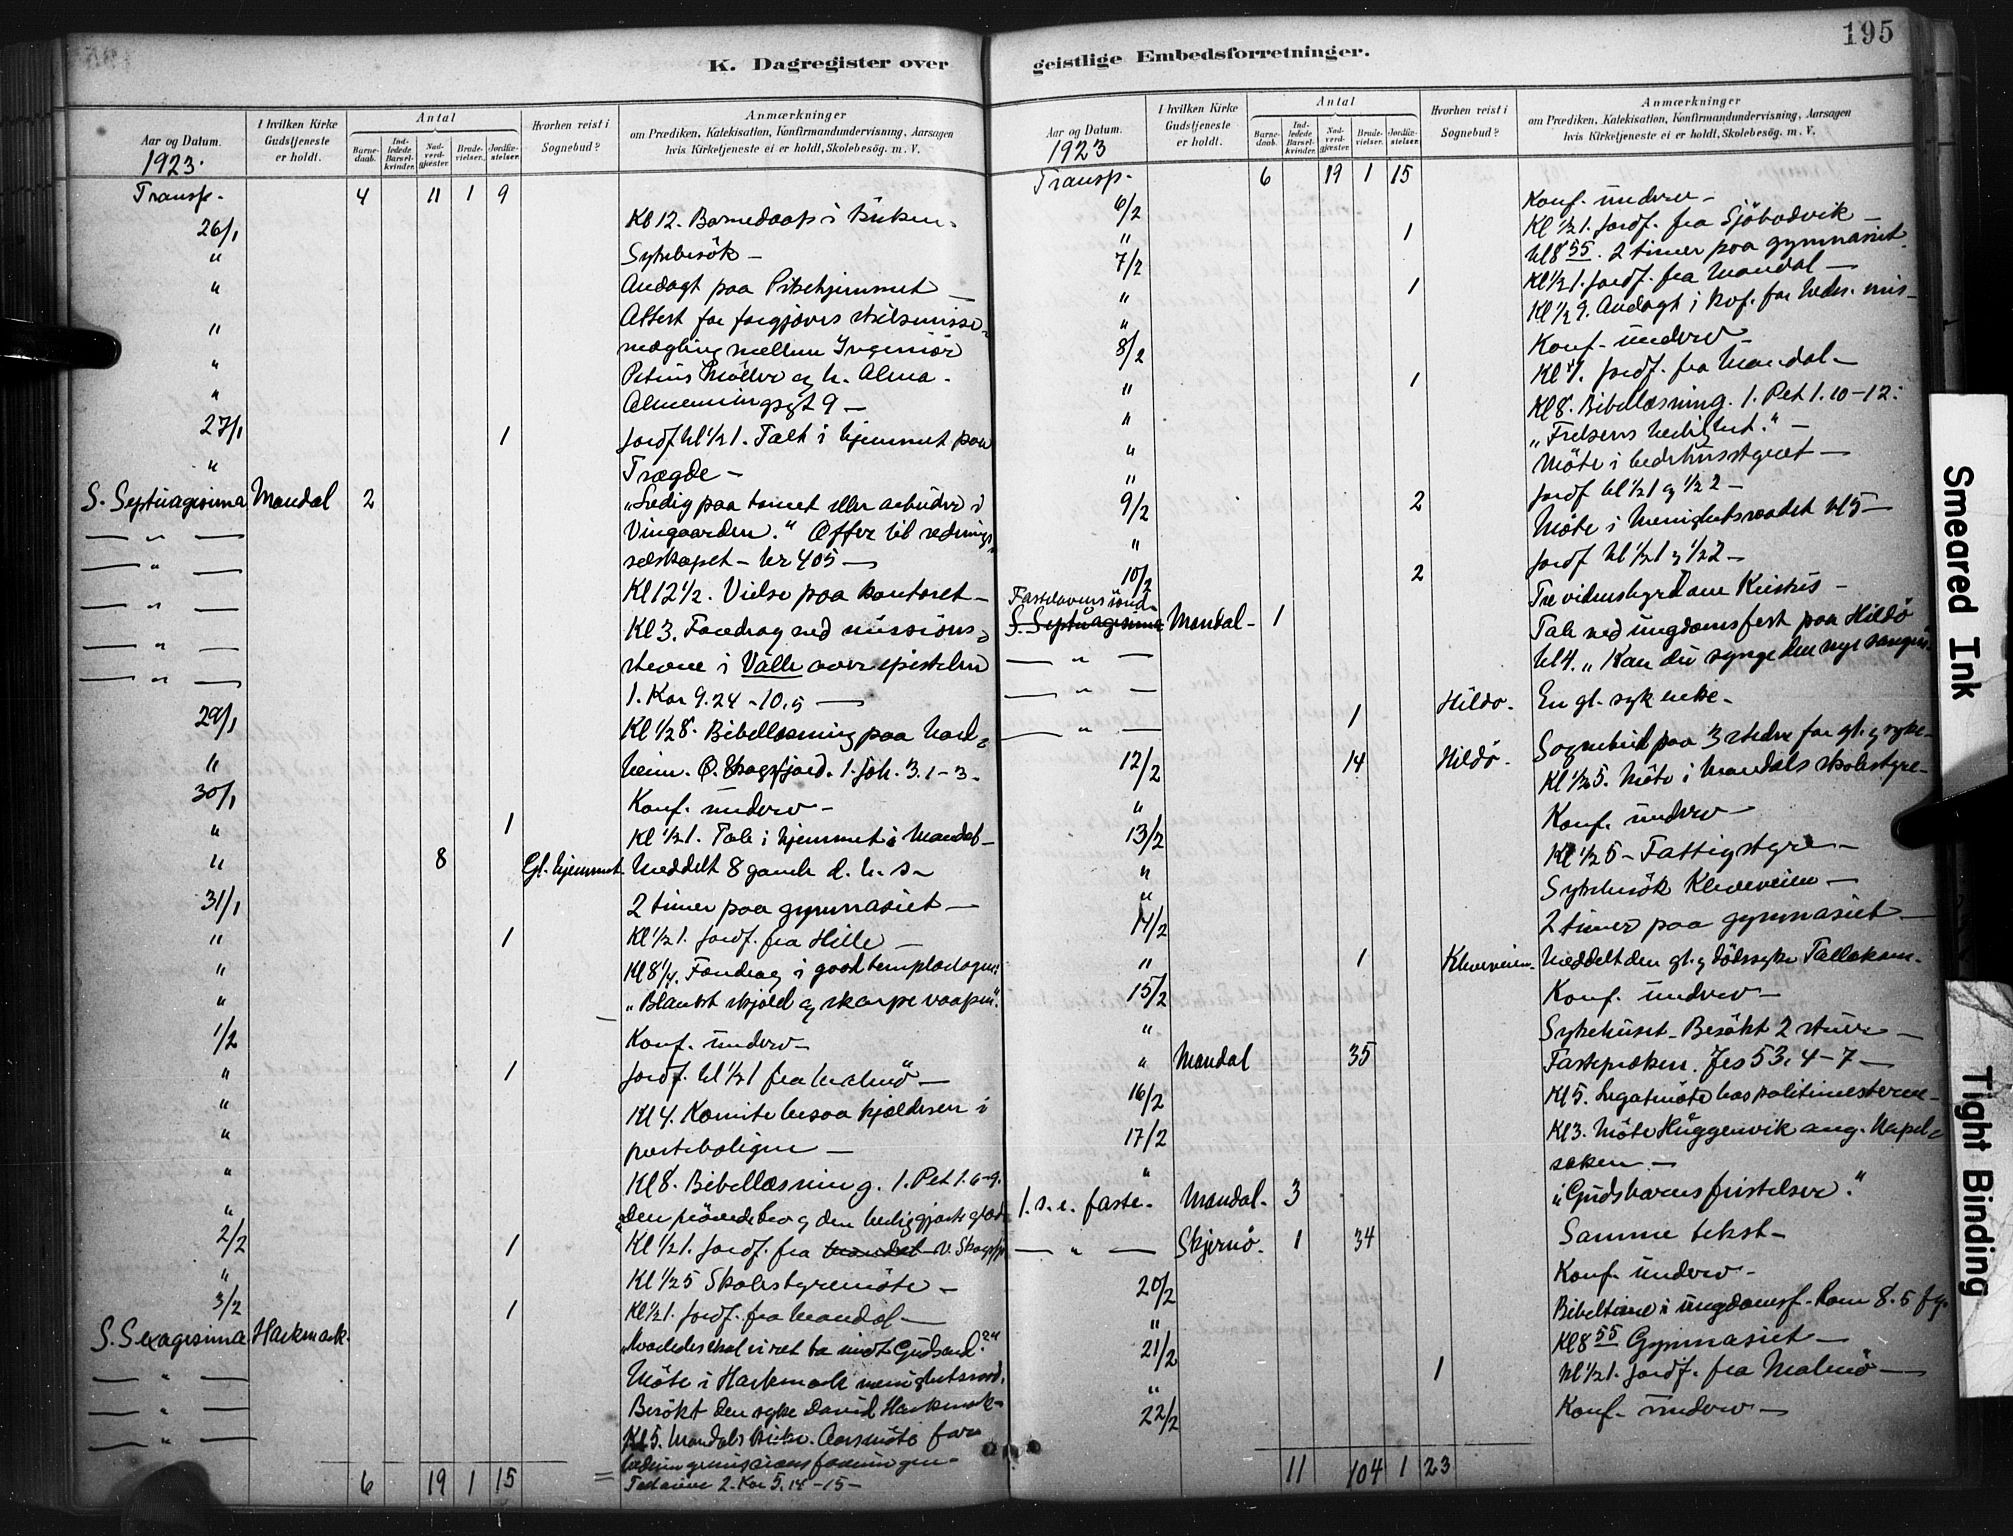 K. Dagregister over
Aar og Datum.
1923.
I hvilken Kirke Gudstjeneste er holdt.
Antal
Barnedaab.
Indledede Barselkvinder.
Nadverdgjæster.
Brudevielser.
Jordfæstelser.
Hvorhen reist i Sognebud?
Anmærkninger
om Prædiken, Katekisation, Konfirmandundervisning, Aarsagen
hvis Kirketjeneste ei er holdt, Skolebesög. m. V.
Transp. 4 11 1 9
26/1 Kl 12. Barnedaap i Kirken.
" Sykebesök —
" Andagt paa Pikehjemmet —
" Attest for forgjæves skilsmisse-
mægling mellem Ingeniör
" Petrus Möller og h. Alma.
" Almenningsgt 9 —
27/1 1 Jordf kl 1/2 1. Talt i hjemmet paa
" Trægde —
S. Septuagesima Mandal 2 "Ledig paa torvet eller arbeider i
— " — Vingaarden." Offer til rednings
— " — selskapet — kr 405 —
— " — Kl 12 1/2. Vielse paa kontoret —
— " — Kl 3. Foredrag ved missions-
— " — stevne i Valle over epistelen
1. Kor 9.24 - 10.5 —
29/1 Kl 1/2 8. Bibellæsning paa
" 1. Joh. 3.1-3.
30/1 Konf. underv —
" 1 Kl 1/2 1. Tale i hjemmet i Mandal —
" 8 Gl. hjemmet. Meddelt 8 gamle d. h. s —
31/1 2 timer paa gymnasiet —
" 1 Kl 1/2 1. Jordf. fra Hille —
" Kl 8 1/4. Foredrag i godtemplarlogen:
" "Blankt skjold og skarpe vaapen".
1/2 Konf. underv —
" 1 Jordf. kl 1/2 1 fra Malmö —
" Kl 4. Komite besaa kjelderen i
" presteboligen —
" Kl 8. Bibellæsning. 1. Pet 1.6-9.
" "Den prövede tro og den herliggjorte glæde
2/2 1 Kl 1/2 1. Jordf. fra Mandal
" Kl 1/2 5 Skolestyremöte —
3/2 1 Kl 1/2 1. Jordf. fra Mandal —
S. Sexagesima Harkmark. "Hvorledes skal vi ret ta imot Guds ord?"
— " — Möte i Harkmark menighetsraad.
— " — Besökt den syke David Harkmark —
— " — Kl 5. Mandals Kirke. Aarsmöte for
6 19 1 15 2. Kor 5.14-15 —
195
geistlige Embedsforretninger.
Aar og Datum.
1923
I hvilken Kirke Gudstjeneste er holdt.
Antal
Barnedaab.
Indledede Barselkvinder.
Nadverdgjæster.
Brudevielser.
Jordfæstelser.
Hvorhen reist i Sognebud?
Anmærkninger
om Prædiken, Katekisation, Konfirmandundervisning, Aarsagen
hvis Kirketjeneste ei er holdt, Skolebesög. m. V.
Transp. 6 19 1 15
6/2 Konf. underv —
" 1 Kl 1/2 1. Jordf. fra Sjöbodvik —
7/2 Kl 8 55. 2 timer paa gymnasiet
" 1 Kl 1/2 1. Jordf. fra Mandal —
" Kl 1/2 9. Andagt i for
8/2 Konf. underv —
" 1 Kl 1. Jordf. fra Mandal —
" Kl 8. Bibellæsning. 1. Pet 1.10-12:
" "Frelsens herlighet." —
" Möte i bedehusstyret —
9/2 2 Jordf kl 1/2 1 og 1/2 2 —
" Möte i Menighetsraadet kl 5 —
10/2 2 Jordf kl 1/2 1 og 1/2 2 —
Fastelavens sönd.
S. Septuagesima Mandal — 1 Tre vidnesbyrd om Kristus —
— " — Tale ved ungdomsfest paa Hildö
kl 4. "Kan du synge den nye sangen".
— " — 1 Hildö. En gl. syk enke.
— " — 14 Hildö. Sognebud paa 3 steder for gl. og syke.
12/2 Kl 1/2 5. Möte i Mandals skolestyre —
" Konf. underv —
13/2 Kl 1/2 5 — Fattigstyre —
" Sykebesök Kleveveien —
14/2 2 timer paa gymnasiet —
" 1 Kleveveien. Meddelt den gl. og dödssyke
15/2 Konf. underv —
" Sykehuset. Besökt 2 stuer —
" Mandal 35 Fastepræken. Jes 53. 4-7 —
16/2 Kl 5. Legatmöte hos politimesteren —
17/2 Kl 3. Möte ang. kapel-
" saken —
1. s. i. faste. Mandal. 3 "Gudsbarns fristelser."
— " — Skjernö. 1 34 Samme tekst —
20/2 Konf. underv —
" Bibeltime i ungdomsf. Rom 8.5 fg.
21/2 Kl 8 55 Gymnasiet —
" 1 Kl 1/2 1. Jordf. fra Malmö —
22/2 Konf. underv —
11 104 1 23
Smeared Ink
Tight Binding